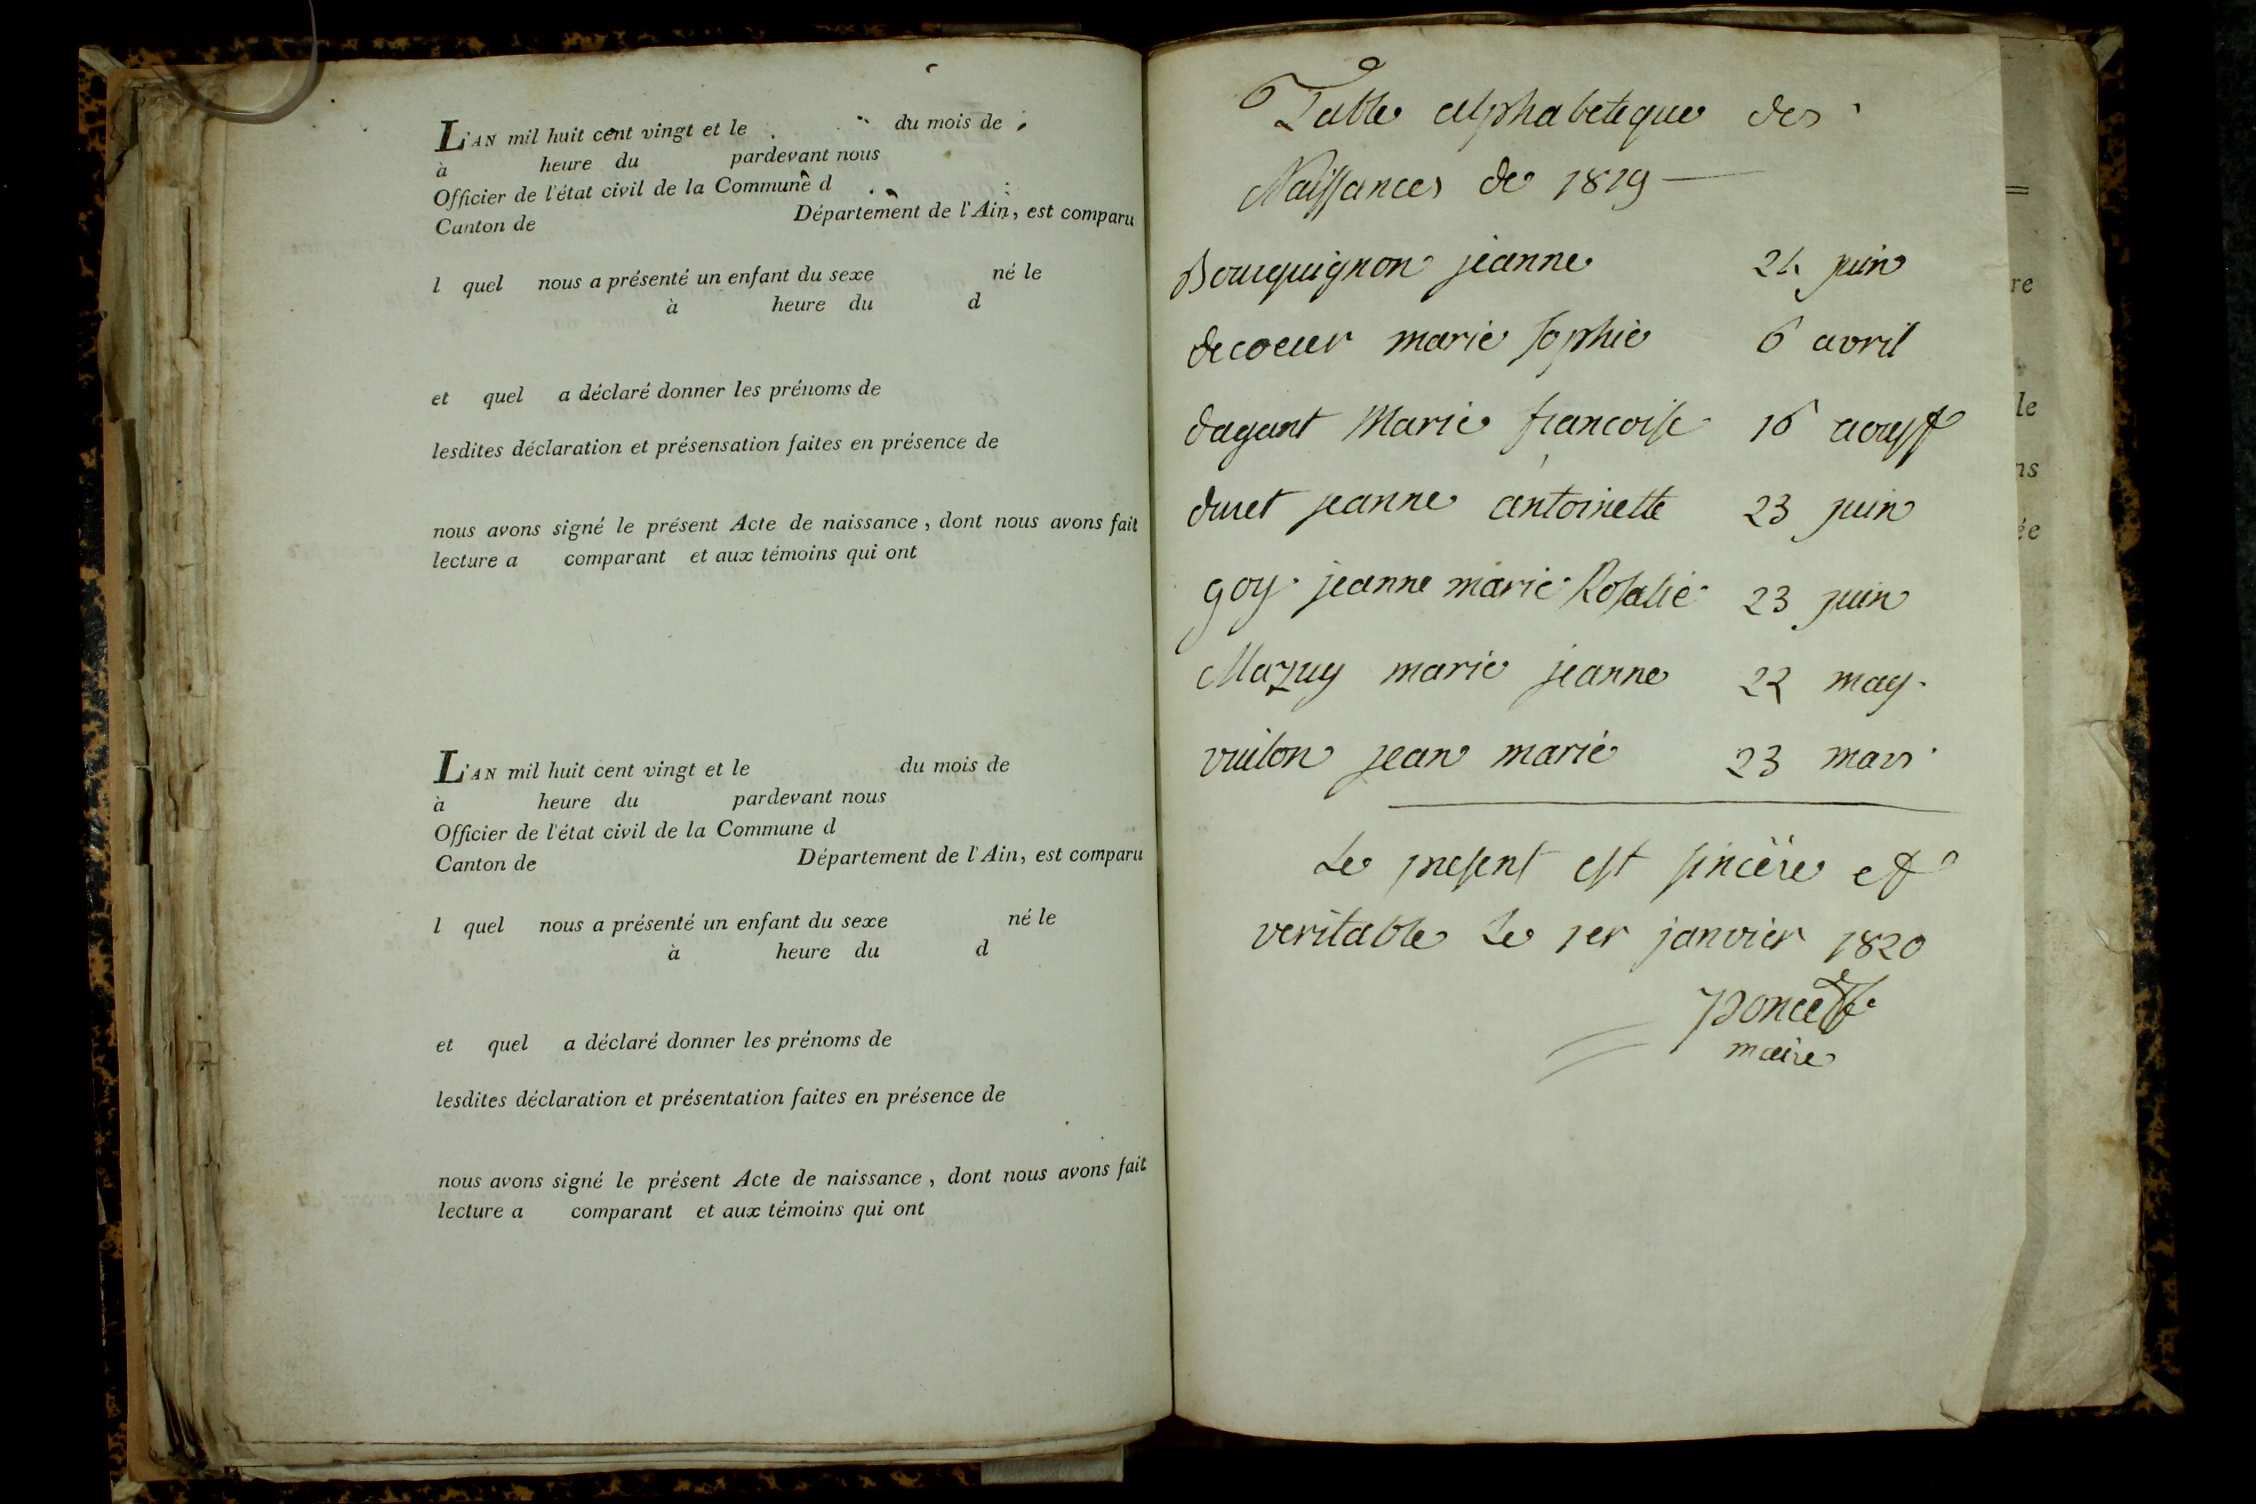 L'AN mil huit cent vingt et le du mois de
à heure du pardevant nous
Officier de l'état civil de la Commune d
Canton de Département de l'Ain, est comparu
l quel nous a présenté un enfant du sexe né le
à heure du d
et quel a déclaré donner les prénoms de
lesdites déclaration et présensation faites en présence de
nous avons signé le présent Acte de naissance, dont nous avons fait
lecture a comparant et aux témoins qui ont
L'AN mil huit cent vingt et le du mois de
à heure du pardevant nous
Officier de l'état civil de la Commune d
Canton de Département de l'Ain, est comparu
l quel nous a présenté un enfant du sexe né le
à heure du d
et quel a déclaré donner les prénoms de
lesdites déclaration et présentation faites en présence de
nous avons signé le présent Acte de naissance, dont nous avons fait
lecture a comparant et aux témoins qui ont
Table alphabeteque des
Naissances de 1819
Bourguignon jeanne juin
decoeur marie sophie 6 avril
dagant Marie francoise 16 aoust
duret jeanne antoinette 23 juin
goy jeanne marie Rosalie 23 juin
Mazuy marie jeanne may
vuilon jean marie 23 mars
Le present est sincère et
veritable Le 1er janvier 1820
Poncet
maire
re
le
ns
ée